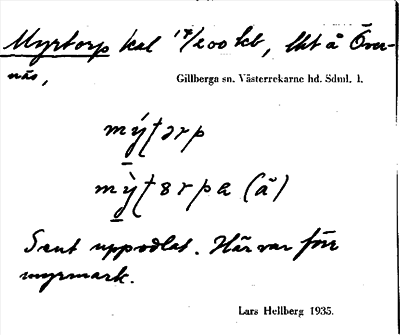 Myrtorp kal 17/200 kb, lht å Över-
näs,
Gillberga sn. Västerrekarne hd. Sdml. 1.
mýʈɔrp
mỳʈ8rpa (å)
Sent uppodlat. Här var förr
myrmark.
Lars Hellberg 1935.